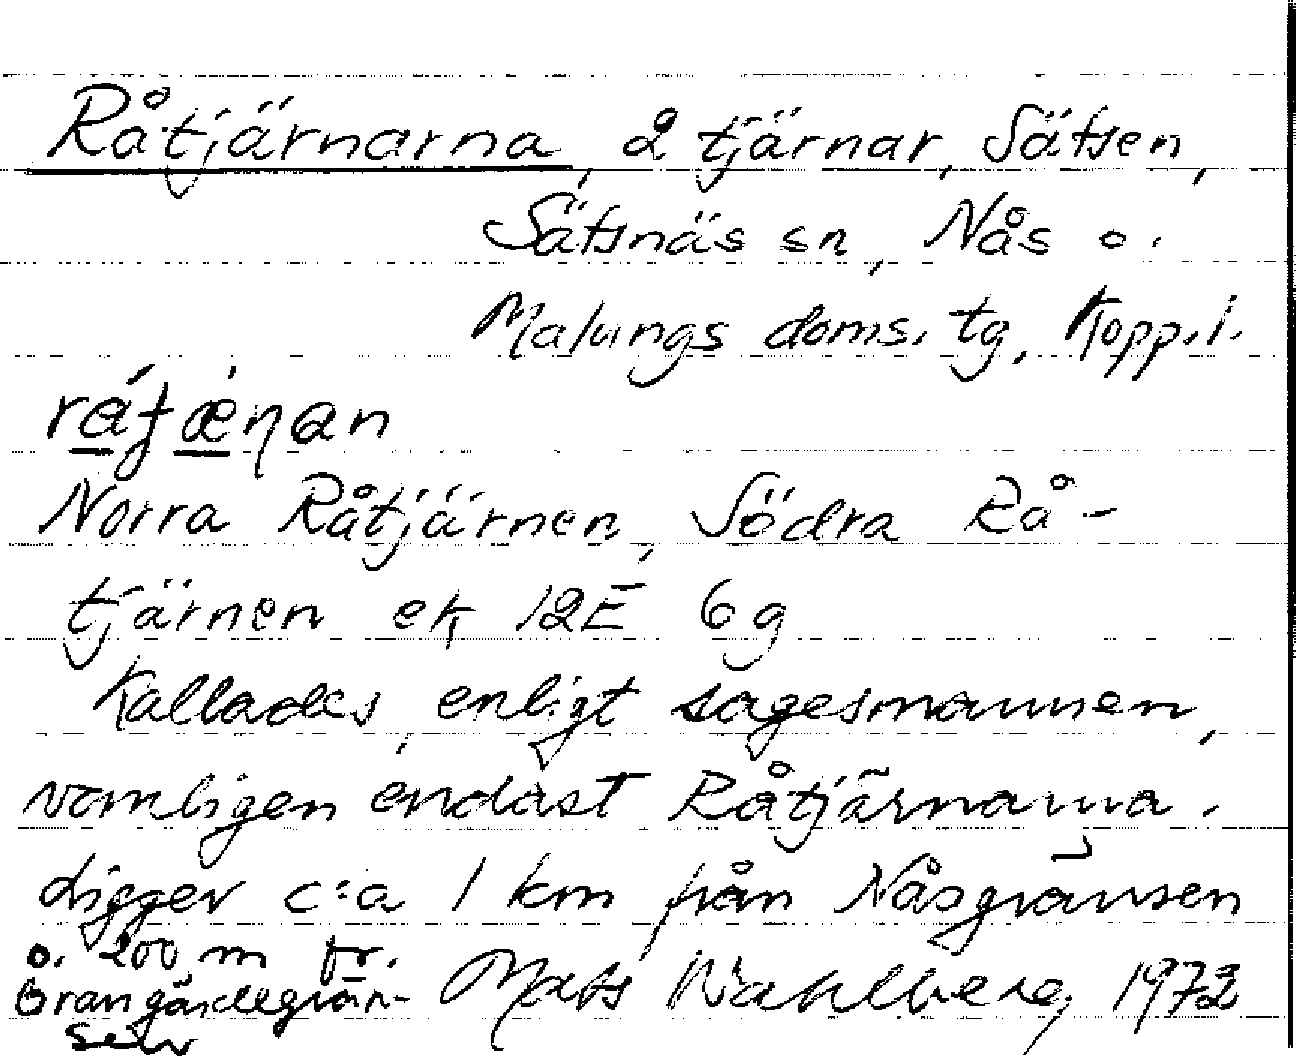 Råtjärnarna, 2 tjärnar, Säfsen,
Säfsnäs sn, Nås o.
Malungs doms. tg, Kopp. l.
Norra Råtjärnen, Södra Rå-
tjärnen ek 12E 6g
Kallades, enligt sagesmannen,
vanligen endast Råtjärnarna.
Ligger c:a 1 km från Nåsgränsen
o. 200 m fr.
Grangärdegrän- Mats Wahlberg 1972
sen